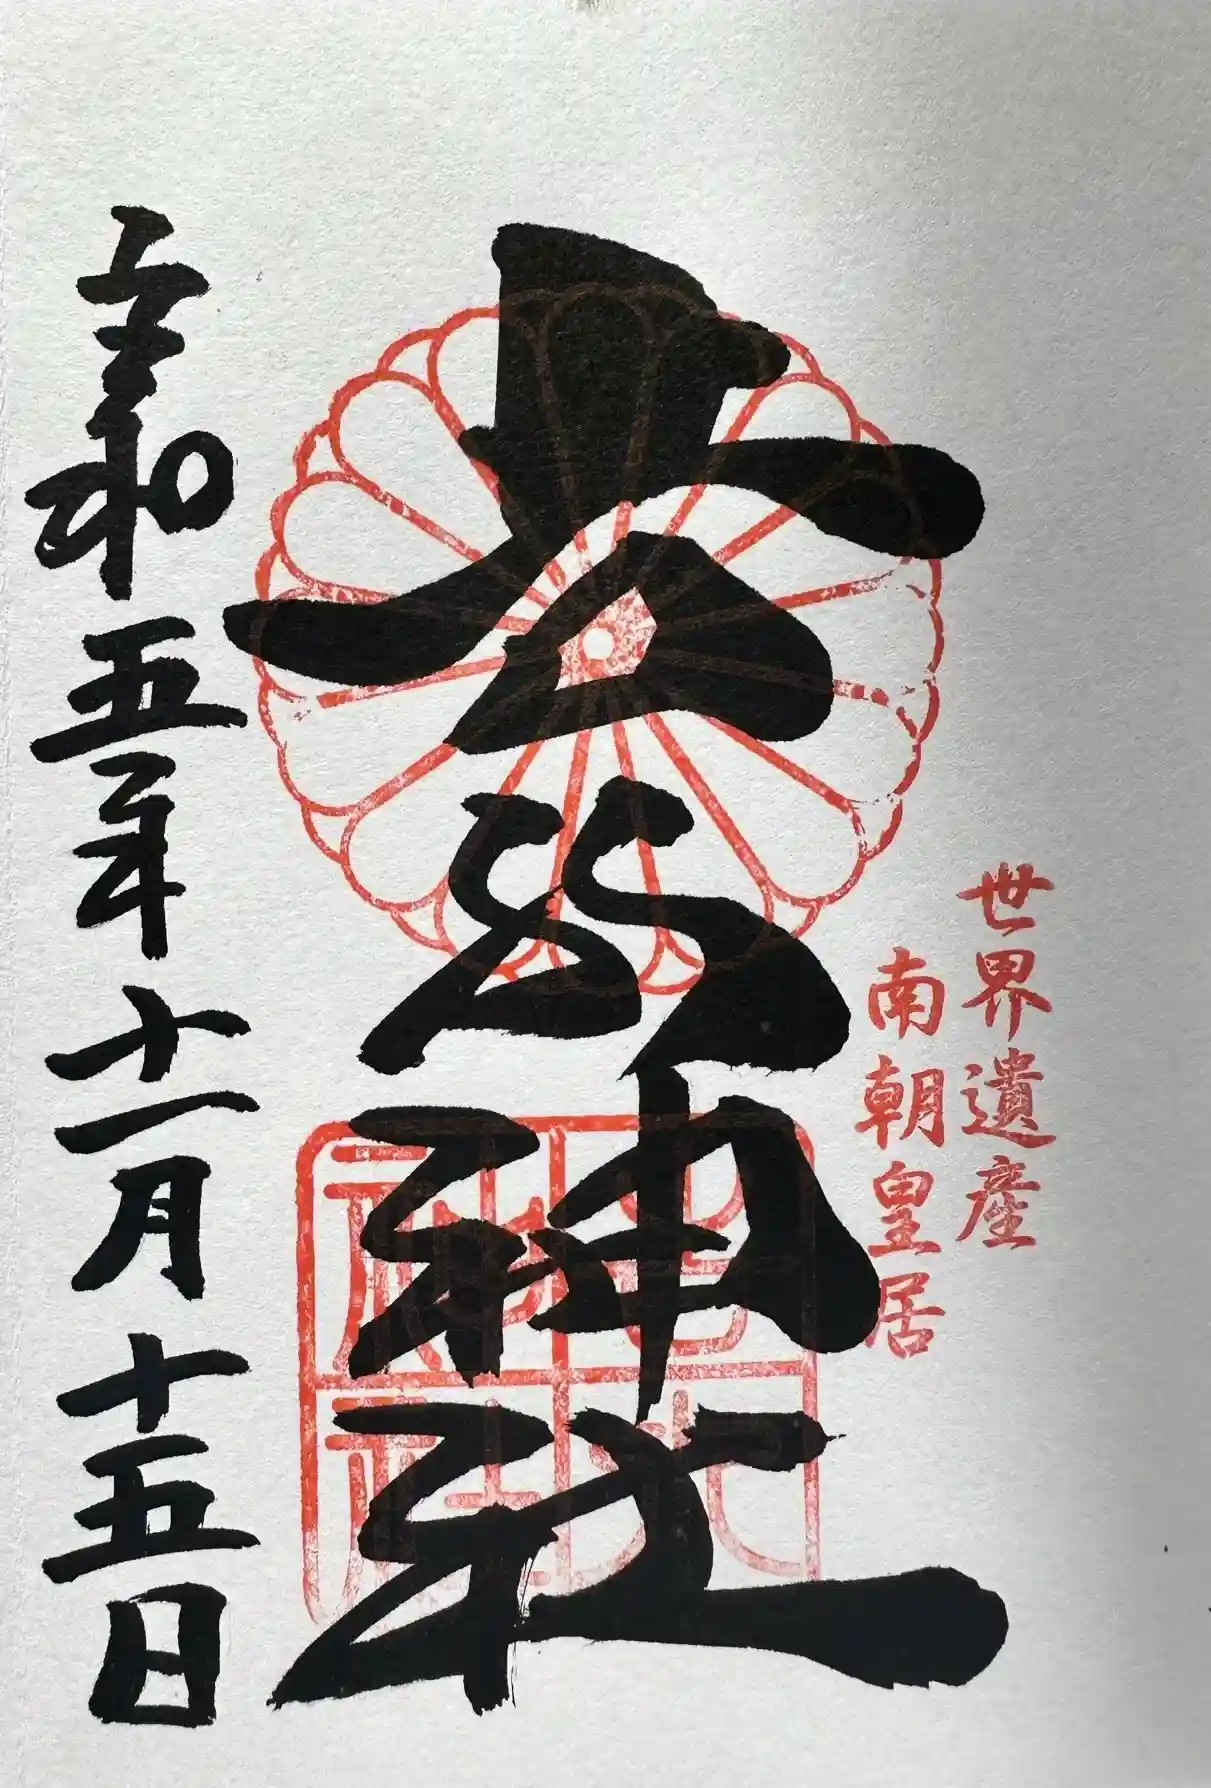 世界遺産
南朝皇居
吉水神社
吉水神社
令和五年十一月十五日